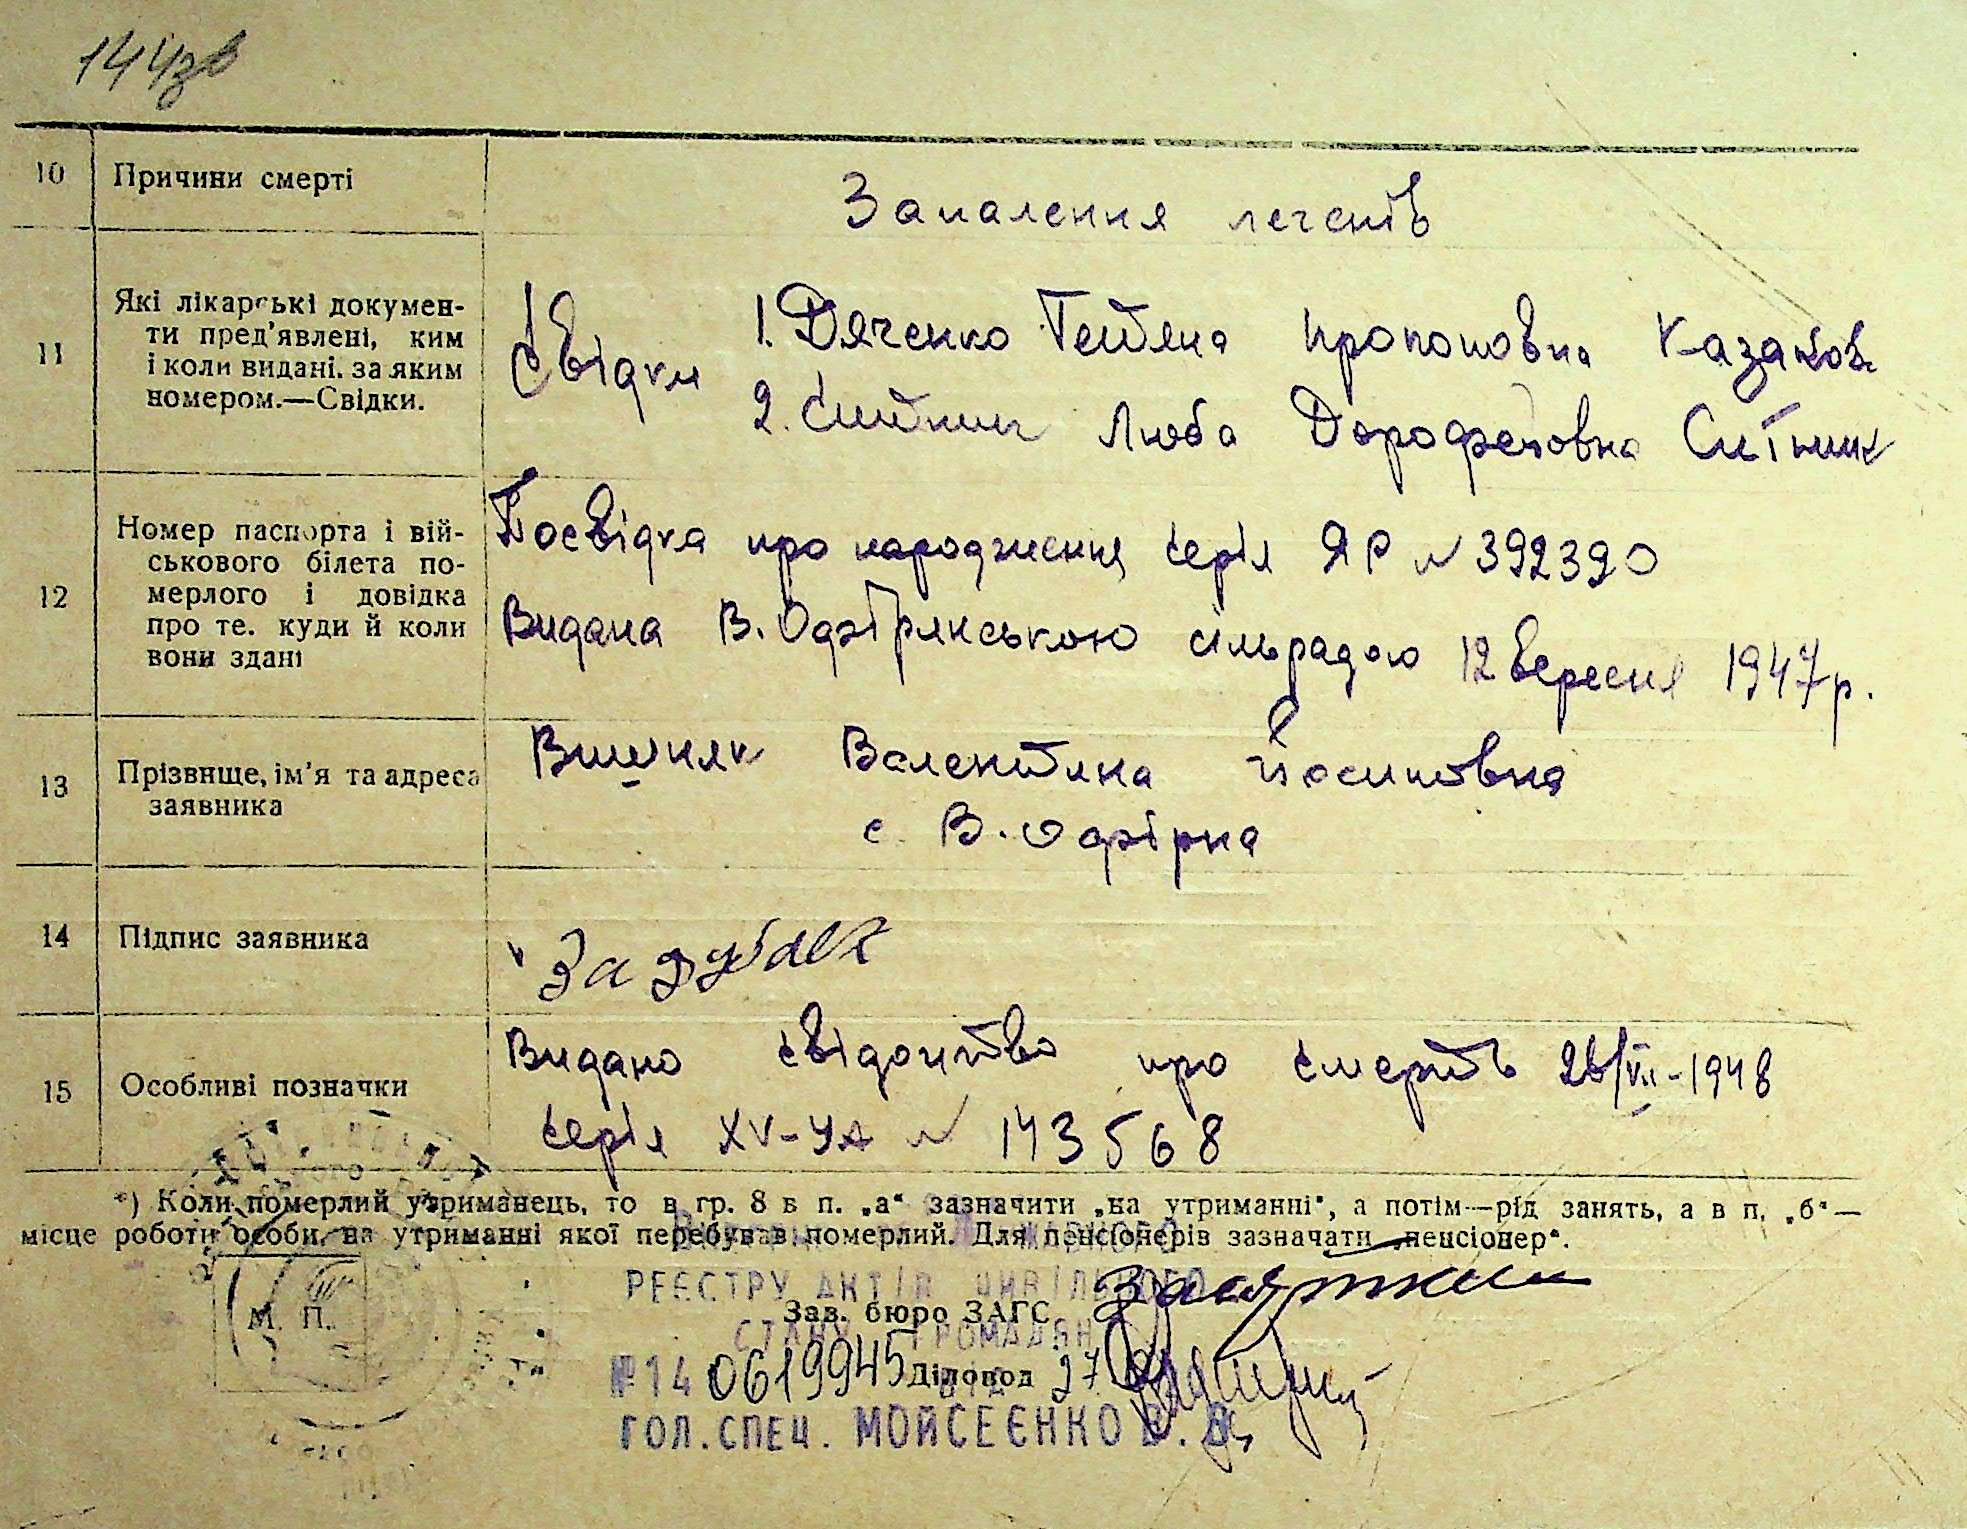 144зв
10 Причини смерті Запалення легенів
11 Які лікарські докумен-
ти пред'явлені, ким
і коли видані. за яким
номером.—Свідки.
Свідки 1. Дяченко Тетяна Прокоповна Казаков
2. Ситник Люба Дорофеювна Ситник
12 Номер паспорта і вій-
ськового білета по-
мерлого і довідка
про те. куди й коли
вони здані
Посвідка про народження серія ЯР № 392390
Видана В. Офірнянською сільрадою 12 вересня 1947 р.
13 Прізвище, ім'я та адреса
заявника
Вишняк Валентина Йосиповна
с. В. Офірна
14 Підпис заявника
15 Особливі позначки
Видано свідоцтво про смерть 26/VII-1948
серія XV-УА № 143568
*) Коли померлий утриманець, то в гр. 8 в п. „а“ зазначити „на утриманні“, а потім—рід занять, а в п. „б“—
місце роботи особи, на утриманні якої перебував померлий. Для пенсіонерів зазначати „пенсіонер“.
РЕЄСТРУ АКТІВ ЦИВІЛЬНОГО
М. П.
Зав. бюро ЗАГС
СТАНУ ГРОМАДЯН
№14 0619945 Діловод
ГОЛ.СПЕЦ. МОЙСЕЄНКО